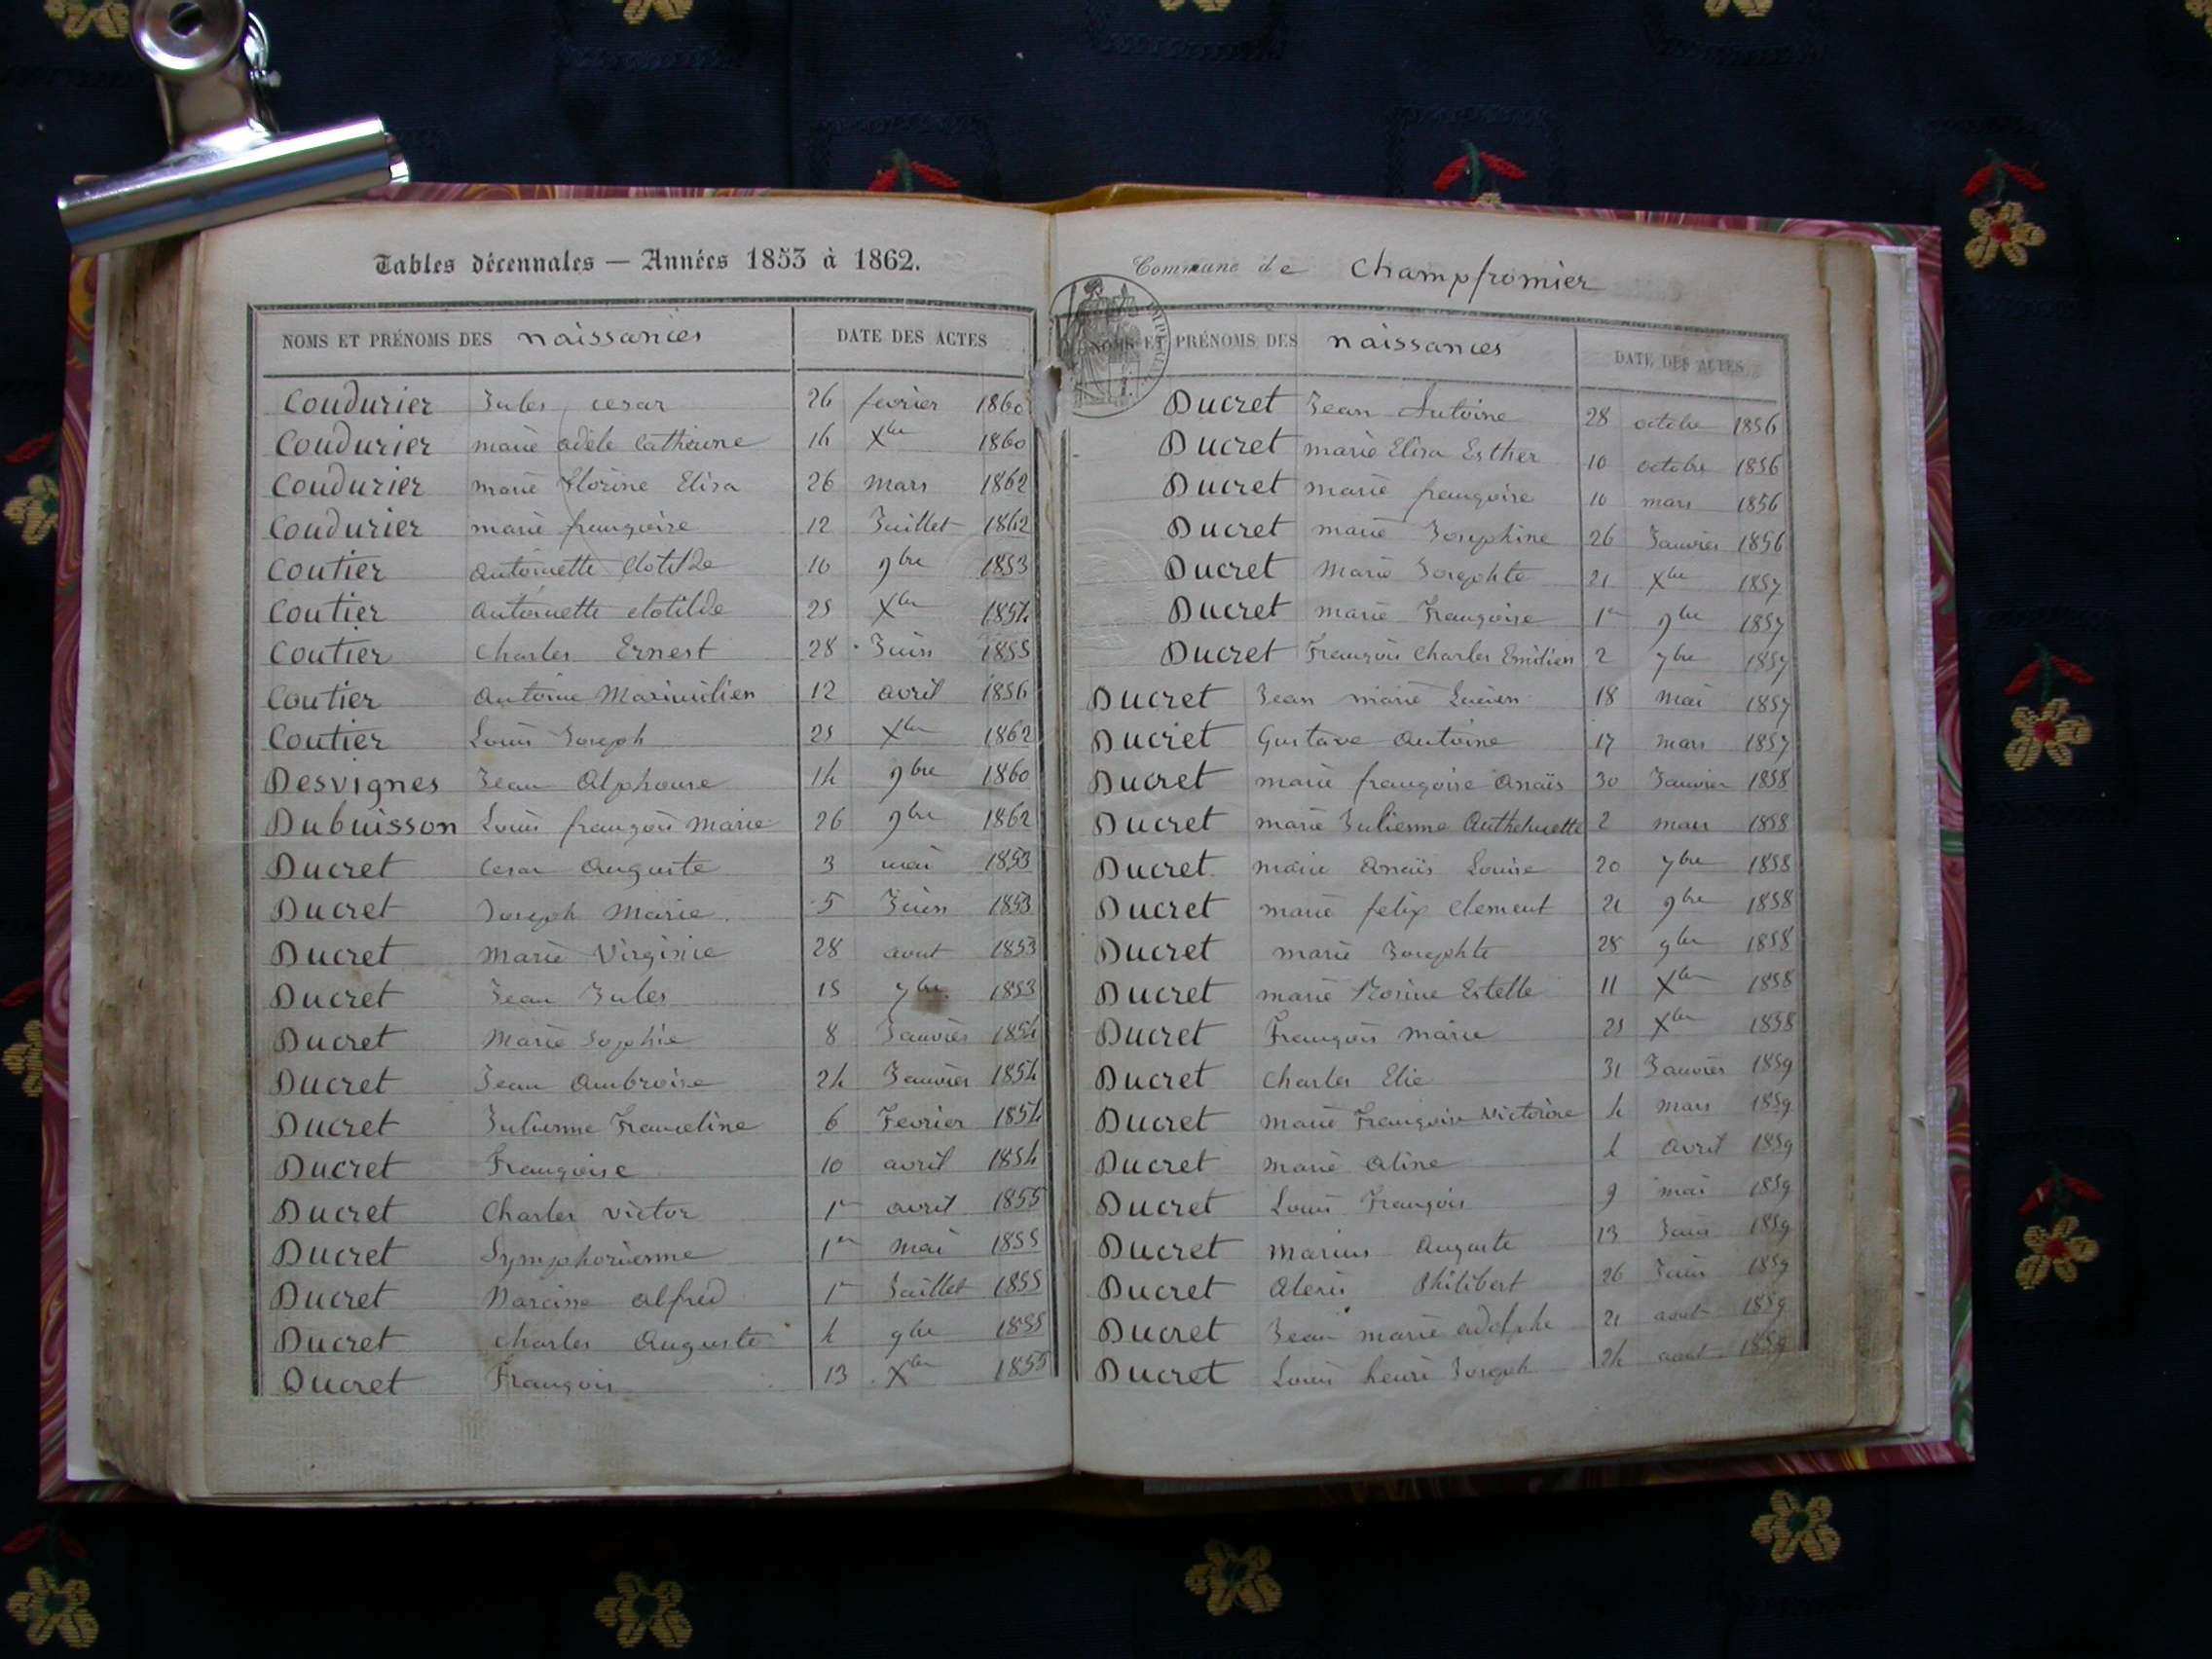 Tables décennales — Années 1853 à 1862.
NOMS ET PRÉNOMS DES naissances DATE DES ACTES
Coudurier Jules cesar 26 fevrier 1860
Coudurier marie adèle Catherine 14 Xbre 1860
Coudurier marie Florine Elisa 26 mars 1862
Coudurier marie françoise 12 Juillet 1862
Coutier Antoinette Clotilde 10 9bre 1853
Coutier antoinette clotilde 25 Xbre 1854
Coutier charles Ernest 28 Juin 1855
Coutier antoine Maximilien 12 avril 1856
Coutier Louis Joseph 25 Xbre 1862
Desvignes Jean Alphonse 14 9bre 1860
Dubuisson Louis françois marie 26 9bre 1862
Ducret Cesar Auguste 3 mai 1853
Ducret Joseph Marie 5 Juin 1853
Ducret Marie Virginie 28 aout 1853
Ducret Jean Jules 15 7bre 1853
Ducret Marie Sophie 8 Janvier 1854
Ducret Jean Ambroise 24 Janvier 1854
Ducret Julienne Franceline 6 Fevrier 1854
Ducret Françoise 10 avril 1854
Ducret Charles victor 1er avril 1855
Ducret Symphorienne 1er mai 1855
Ducret Narcisse alfred 1er Juillet 1855
Ducret charles Auguste 4 9bre 1855
Ducret François 13 Xbre 1855
Commune de Champfromier
NOMS ET PRÉNOMS DES naissances DATE DES ACTES
Ducret Jean Antoine 28 octobre 1856
Ducret marie Elisa Esther 10 octobre 1856
Ducret marie françoise 10 mars 1856
Ducret marie Josephine 26 Janvier 1856
Ducret Marie Josephte 21 Xbre 1857
Ducret marie Françoise 1er 9bre 1857
Ducret François Charles Emilien 2 7bre 1857
Ducret Jean marie Lucien 18 mai 1857
Ducret Gustave Antoine 17 mars 1857
Ducret marie françoise Anaïs 30 Janvier 1858
Ducret marie Julienne 2 mars 1858
Ducret marie Anaïs Louise 20 7bre 1858
Ducret marie felix Clement 21 9bre 1858
Ducret marie Josephte 25 9bre 1858
Ducret marie Rosine Estelle 11 Xbre 1858
Ducret François marie 25 Xbre 1858
Ducret Charles Elie 31 Janvier 1859
Ducret marie Françoise Victorine 4 mars 1859
Ducret marie Aline 4 avril 1859
Ducret Louis François 9 mai 1859
Ducret marius Auguste 13 Juin 1859
Ducret Alexis Philibert 26 Juin 1859
Ducret Jean marie adolphe 21 aout 1859
Ducret Louis henri Joseph 24 aout 1859